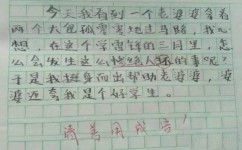 今天我看到一个老婆婆拿着
两个大包孤零零地过马路，我心
想，在这个学雷锋的三月里，怎
么会发生这么惨绝人寰的事呢？于
是我挺身而出帮助老婆婆，婆
婆还夸我是个好学生。
请善用成语！